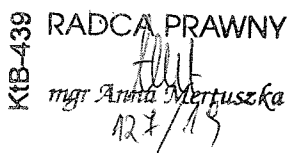 KtB-439
RADCA PRAWNY
mgr Anna Mertuszka
127/15